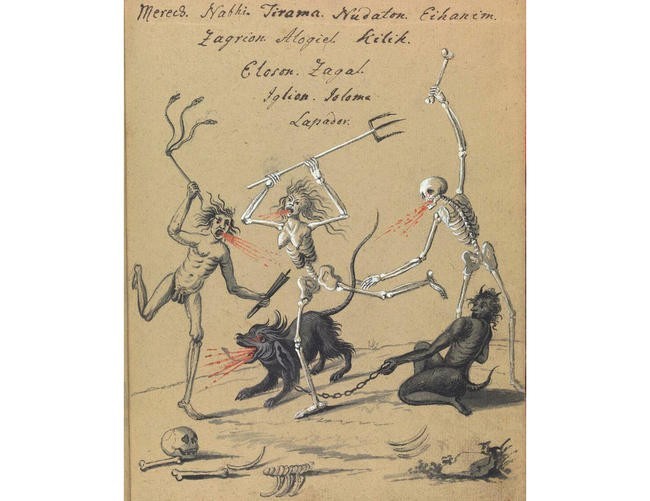 Merecð. Nabhi. Tirama. Nudaton. Eihanim.
Zagrion. Alogiel. Kilik.
Eloson. Zagal.
Iglion. Ioloma
Lapador.